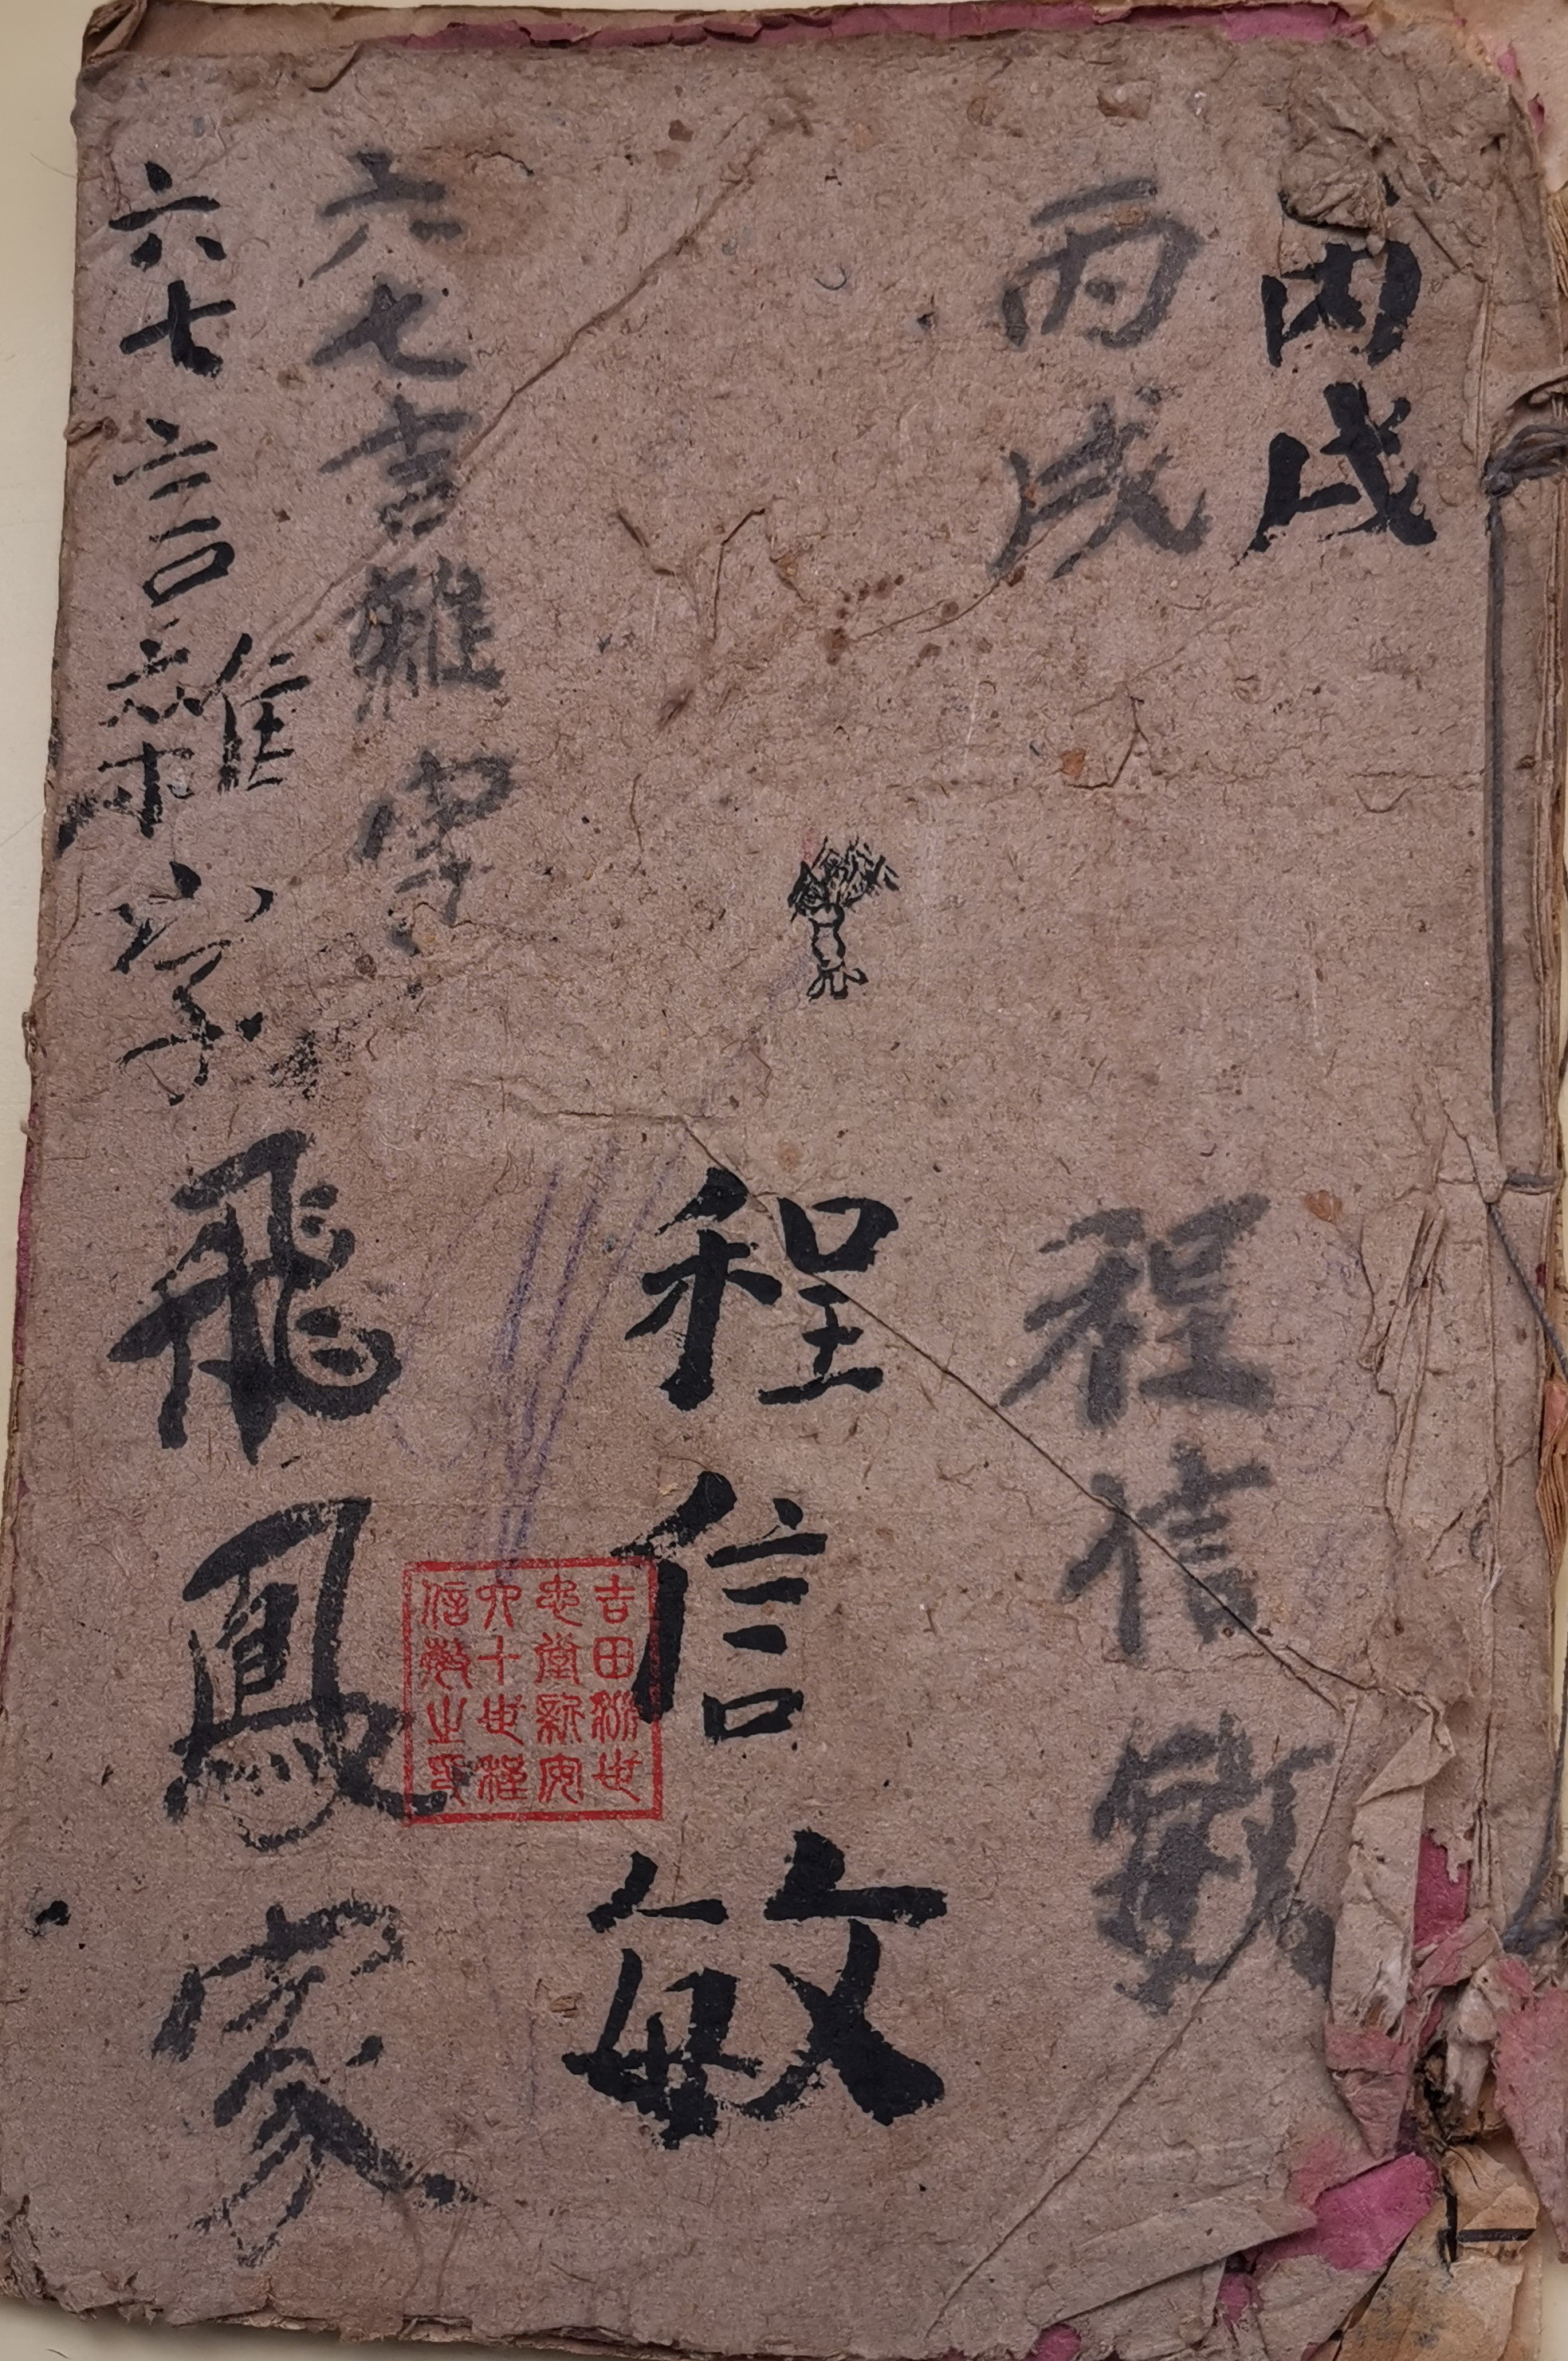 丙戌
丙戌
程信敏
程信敏
吉田派世
忠堂新安
六十世程
信敏之印
六七言雜字
六七言雜字
飛鳳家